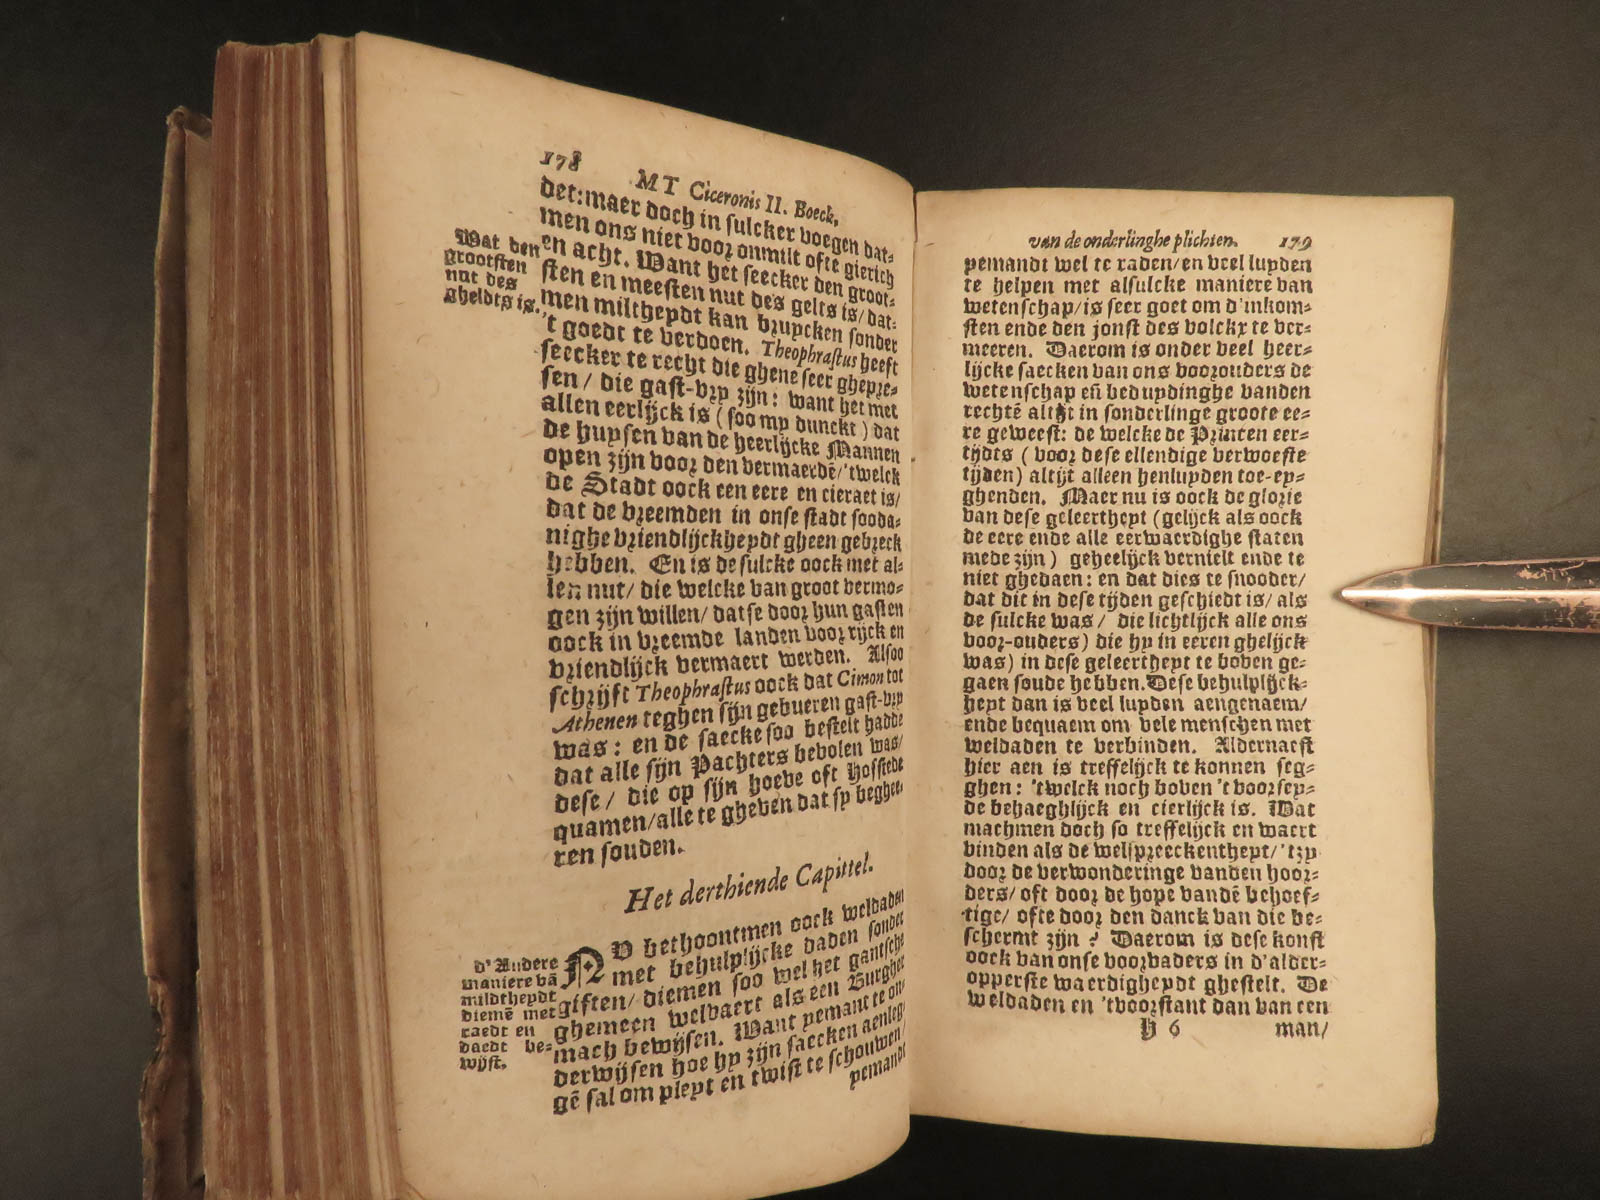 178 MT Ciceronis II. Boeck,
det: maer doch in sulcker voegen dat-
men ons niet voor onmilt ofte gierich
en acht. Want het seecker den groot-
sten en meesten nut des gelts is/ dat-
men miltheydt kan bruycken sonder
't goedt te verdoen. Theophrastus heeft
seecker te recht die ghene seer ghepre-
sen/ die gast-vry zijn: want het met
allen eerlijck is (soo my dunckt) dat
de huysen van de heerlijcke Mannen
open zijn voor den vermaerdē/ 'twelck
de Stadt oock een eere en cieraet is/
dat de vreemden in onse stadt sooda-
nighe vriendlijckheydt gheen gebreck
hebben. En is de sulcke oock met al-
len nut/ die welcke van groot vermo-
gen zijn willen/ datse door hun gasten
oock in vreemde landen voor rijck en
vriendlijck vermaert werden. Alsoo
schrijft Theophrastus oock dat Cimon tot
Athenen teghen sijn gebueren gast-vry
was: en de saecke soo bestelt hadde
dat alle sijn Pachters bevolen was/
dese/ die op sijn hoeve oft Hofstede
quamen/ alle te gheven dat sy beghee-
ren souden.
Wat den
grootsten
nut des
gheldts is.
Het derthiende Capittel.
NU bethoontmen oock weldaden
met behulplijcke daden sonder
giften/ diemen soo wel het gantsche
ghemeen welvaert als een Burgher
mach bewijsen. Want yemant te on-
derwijsen hoe hy zijn saecken aenleg-
gē sal om pleyt en twist te schouwen/
yemandt
d'Andere
maniere vā
mildtheydt
diemē met
raedt en
daedt be-
wijst.
van de onderlinghe plichten. 179
yemandt wel te raden/ en veel luyden
te helpen met alsulcke maniere van
wetenschap/ is seer goet om d'inkom-
sten ende den jonst des volckx te ver-
meeren. Daerom is onder veel heer-
lijcke saecken van ons voorouders de
wetenschap eñ beduydinghe vanden
rechtē altijt in sonderlinge groote ee-
re geweest: de welcke de Printen eer-
tijdts (voor dese ellendige verwoeste
tijden) altijt alleen henluyden toe-ey-
ghenden. Maer nu is oock de glorie
van dese geleertheyt (gelijck als oock
de eere ende alle eerwaerdighe staten
mede zijn) geheelijck vernielt ende te
niet ghedaen: en dat dies te snooder/
dat dit in dese tijden geschiedt is/ als
de sulcke was/ die lichtlijck alle ons
voor-ouders) die hy in eeren ghelijck
was) in dese geleertheyt te boven ge-
gaen soude hebben. Dese behulplijck-
heyt dan is veel luyden aengenaem/
ende bequaem om vele menschen met
weldaden te verbinden. Aldernaest
hier aen is treffelijck te konnen seg-
ghen: 'twelck noch boven 't voorsey-
de behaeghlijck en cierlijck is. Wat
machmen doch so treffelijck en waert
vinden als de welspreeckentheyt/ 'tzy
door de verwonderinge vanden hoor-
ders/ oft door de hope vandē behoef-
tige/ ofte door den danck van die be-
schermt zijn? Daerom is dese konst
oock van onse voorvaders in d'alder-
opperste waerdigheydt ghestelt. De
weldaden en 'tvoorstant dan van een
H 6 man/